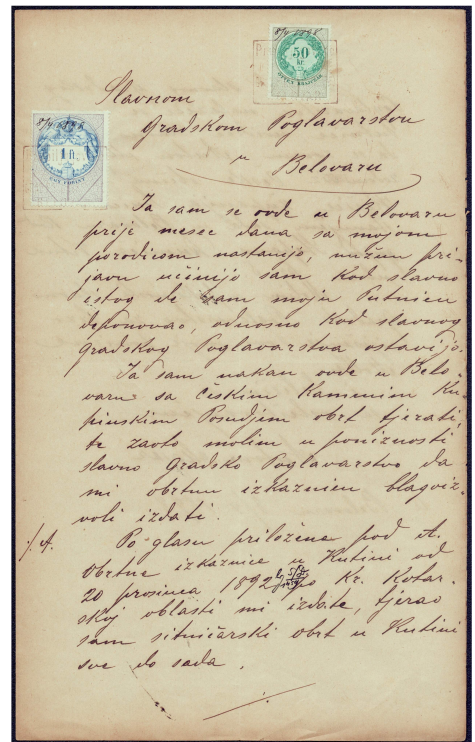 8/4 1898
50
kr.
8/4 1898
1 ft.
EGY FORINT
Slavnom
Gradskom Poglavarstvu
u
Belovaru
Ja sam se ovde u Belovaru
prije mesec dana sa mojom
porodicom nastanijo, nužnu pri-
javu učinijo sam kod slavno
istog de sam moju Putnicu
deponovao, odnosno kod slavnog
gradskog Poglavarstva ostavijo.
Ja sam nakan ovde u Belo-
varu sa českim kamenim Ku-
pinskim Posudjem obrt tjerati
te zaoto molim u poniznosti
slavno Gradsko Poglavarstvo da
mi obrtnu izkaznicu blagoiz-
voli izdati.
Po glasu priložene pod A.
./A.
Obrtne izkaznice u Kutini od
20 prosinca 1892 po kr. Kotar-
skoj oblasti mi izdate, tjerao
sam sitničarski obrt u Kutini
sve do sada.
./.